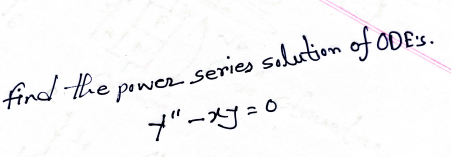 find the power series solution of ODE's.
y'' - xy = 0